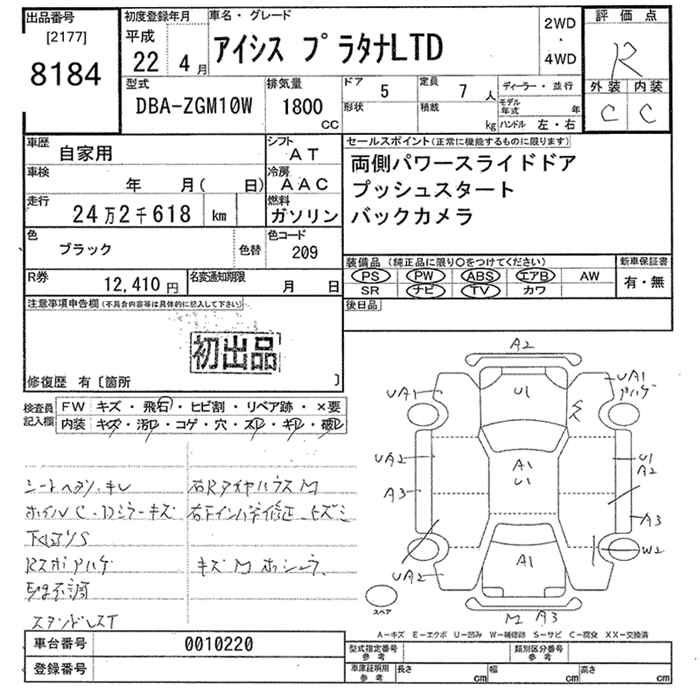 出品番号
[2177]
8184
初度登録年月
平成
22 4月
車名・グレード
アイシス プラタナLTD
2WD
・
4WD
評価点
R
外装 内装
C C
型式
DBA-ZGM10W
排気量
1800
CC
ドア 5
形状
定員 7人
積載 kg
ディーラー・並行
モデル年式 年
ハンドル 左・右
車歴
自家用
シフト
AT
車検
年 月( 日)
冷房
AAC
走行
24万2千618 km
燃料
ガソリン
色
ブラック
色替
色コード
209
R券
12,410円
名変通知期限
月 日
セールスポイント(正常に機能するものに限ります)
両側パワースライドドア
プッシュスタート
バックカメラ
装備品(純正品に限り○をつけてください)
PS PW ABS エアB AW
SR ナビ TV カワ
新車保証書
有・無
後日品
注意事項申告欄(不具合内容等は具体的に記入して下さい)
初出品
修復歴 有〔箇所 〕
検査員記入欄
FW キズ・飛石・ヒビ割・リペア跡・×要
内装 キズ・汚レ・コゲ・穴・スレ・キレ・破レ
ホイルC・Dミラーキズ
キズ M
A2
UA1
U1
UA1
UA2
A1
U1
U1
A2
A3
A3
UA2
A1
W2
M A3
スペア
A-キズ E-エクボ U-凹み W-補修跡 S-サビ C-腐食 XX-交換済
車台番号 0010220
登録番号
型式指定番号 参考
類別区分番号 参考
車庫証明用 参考
長さ cm 幅 cm 高さ cm